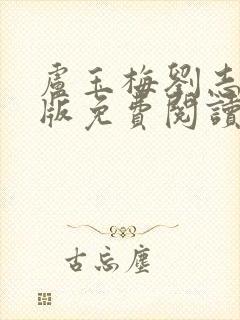 盧玉梅劉志
版免費閱讀
古忘塵